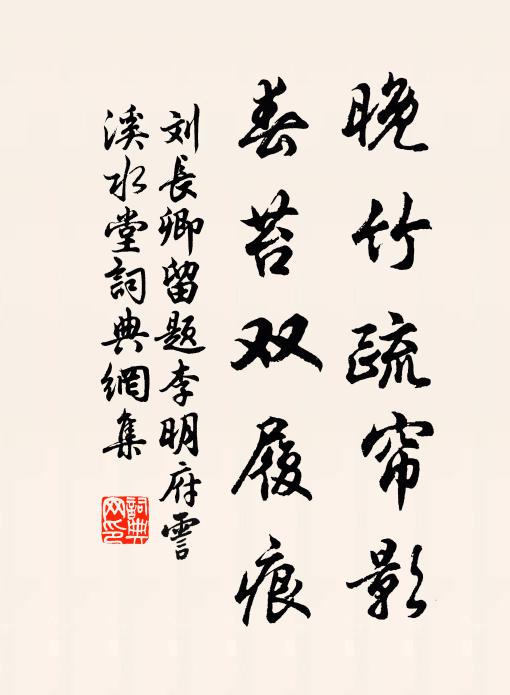 晚竹疏帘影
春苔双履痕
刘長卿留题李明府霅
溪水堂詞典網集
詞典
网印